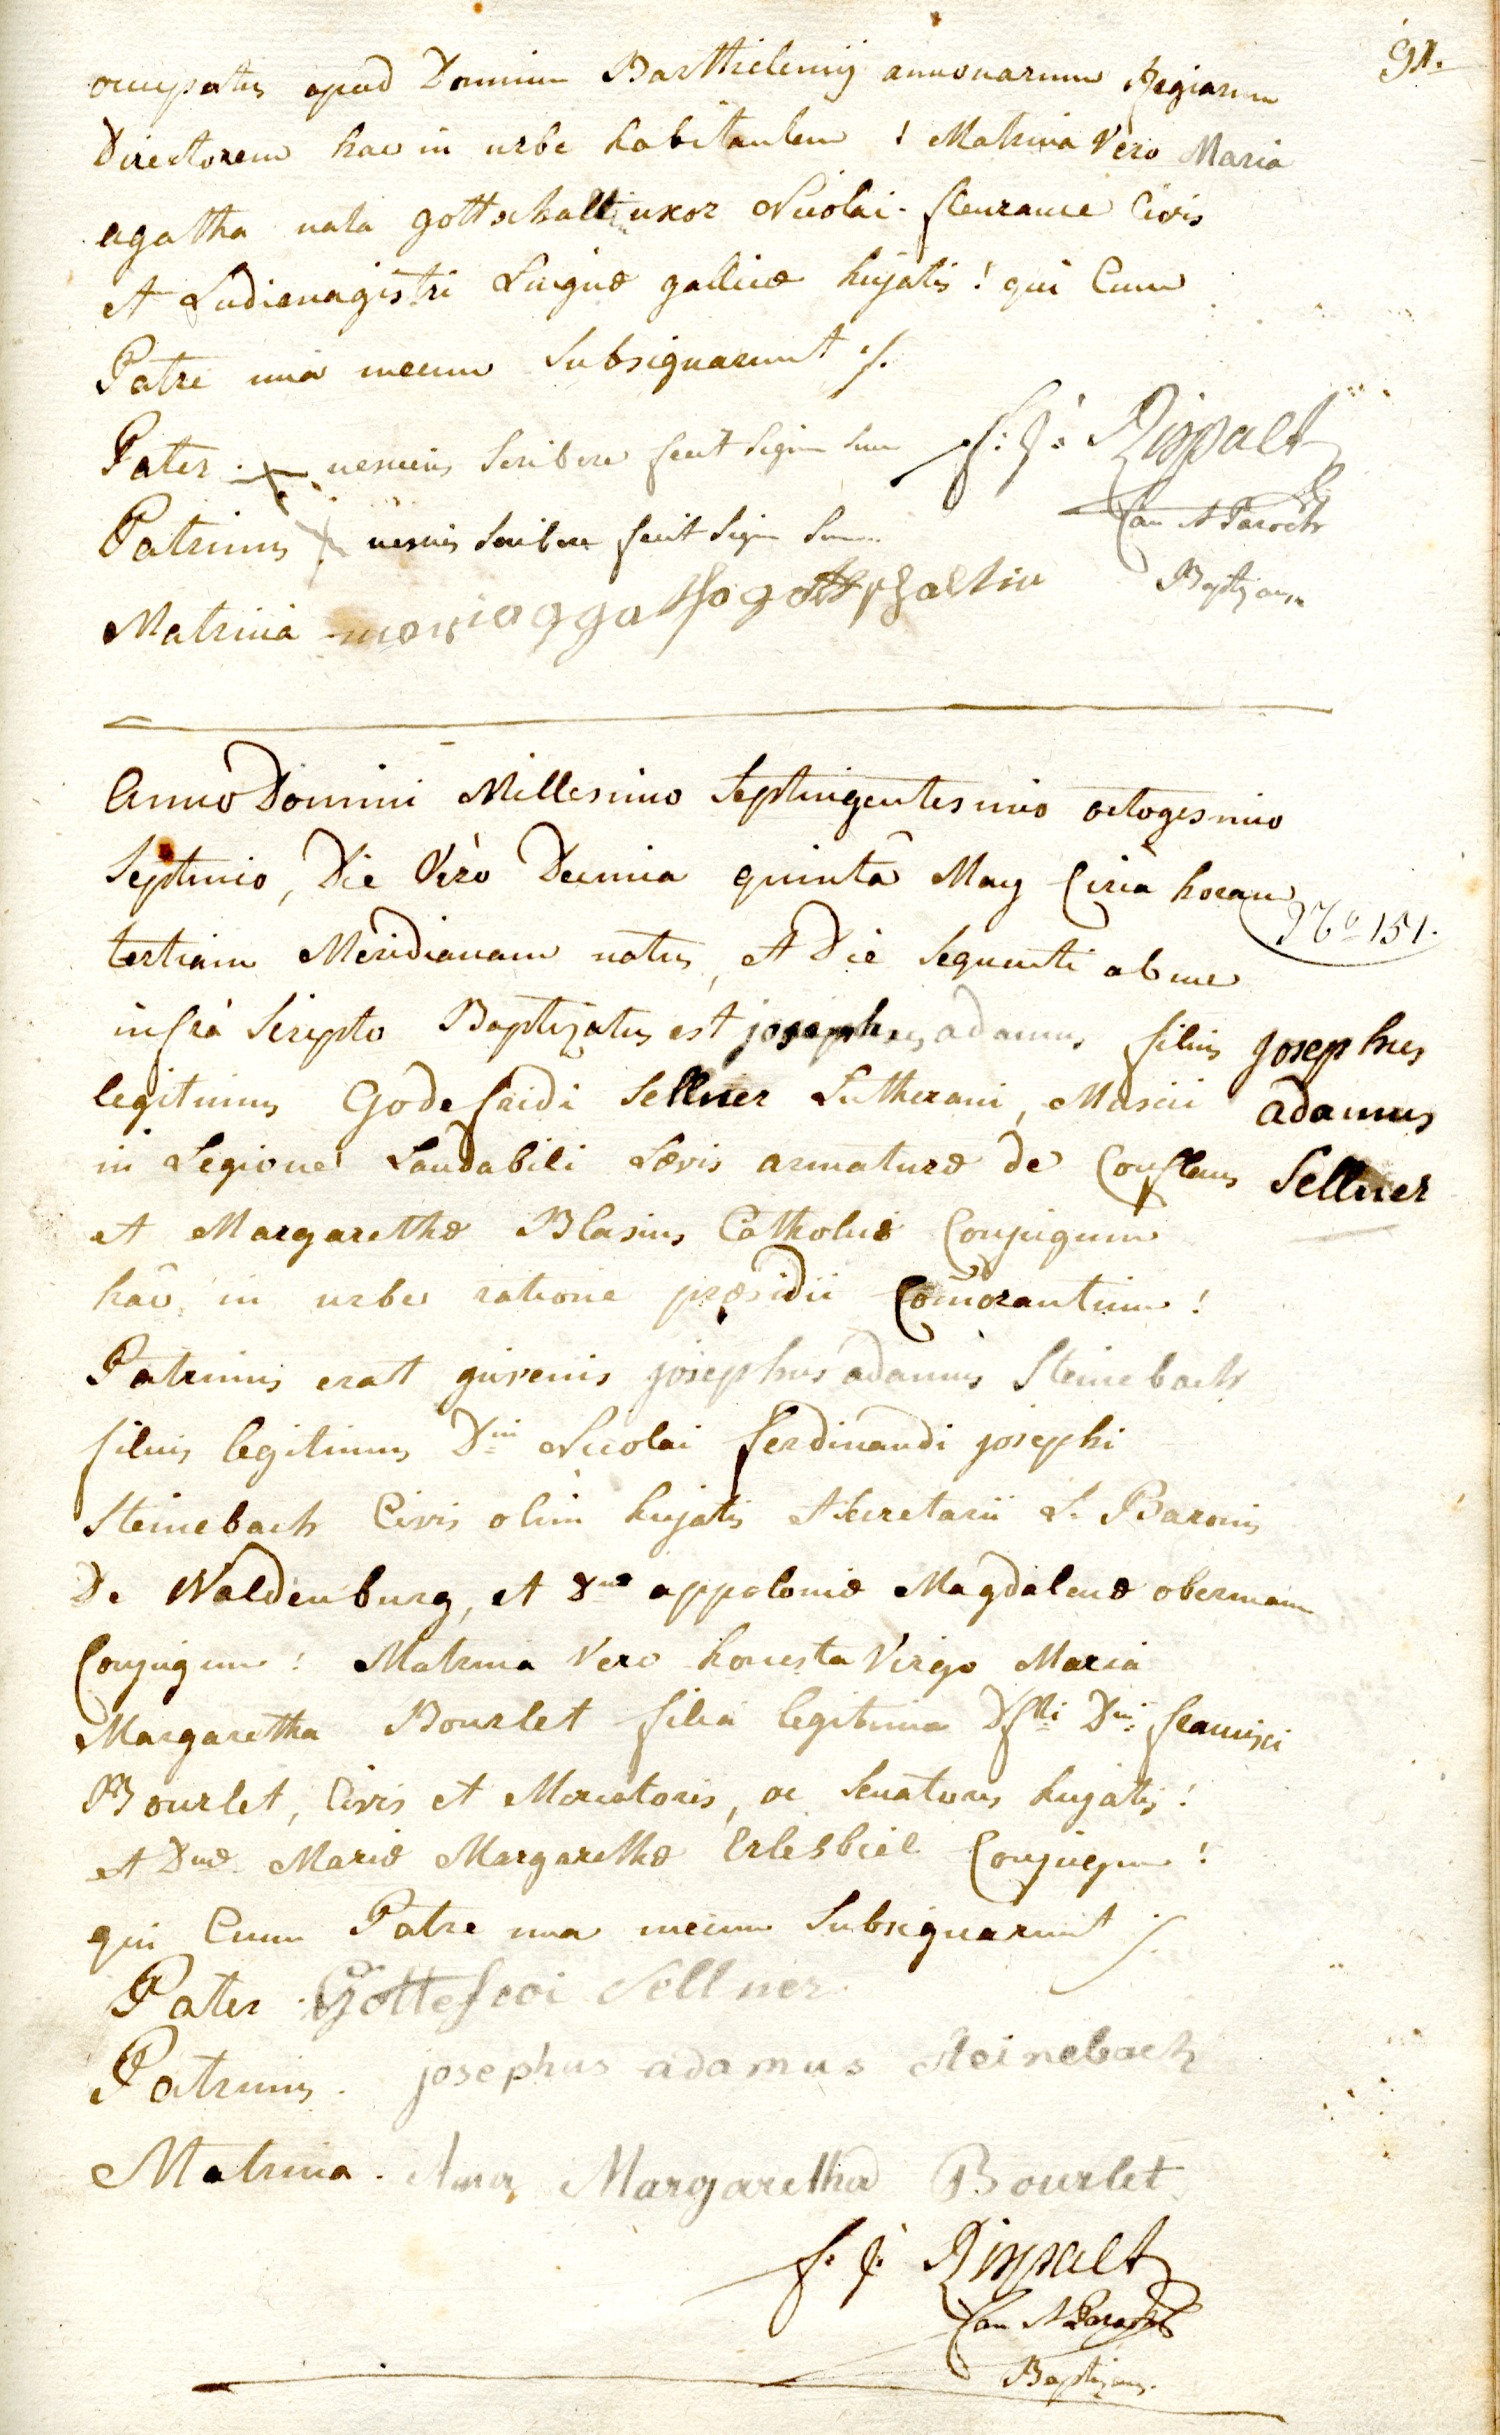 91.
occupatus apud Dominum Barthelemij annonarum Regiarum
Directorem hac in urbe habitantem ! Matrina Vero Maria
agatha nata gottschalkin uxor Nicolai fleurance Civis
et Ludimagistri Linguæ gallicæ hujatis ! qui Cum
Patre una mecum Subsignarunt ·/.
Pater. nescius Scribere fecit Signum Suum
Patrinus nescius Scribere fecit Signum
f: J: Rippalt
Can et Paroch
Baptizans
Matrina maria agga
Anno Domini Millesimo Septingentesimo octogesimo
Septimo, Die Verò Decima quintâ May Circa horam
tertiam Meridianam natus, et Die Sequenti ab me
infrà Scripto Baptizatus est josephus adamus filius
legitimus Godefridi Sellner Lutherani, Musici
in Legione Laudabili Lævis armaturæ de Conflans
et Margarethæ Blasius Catholicæ Conjugum
hac in urbe ratione præsidii Comorantium !
Nro 151.
josephus
adamus
Sellner
Patrinus erat juvenis josephus adamus Steinebach
filius legitimus Dni Nicolai ferdinandi josephi
Steinebach Civis olim hujatis et Secretarii L. Baronis
De Waldenburg, et Dnæ appoloniæ Magdalenæ obermann
Conjugum ! Matrina Vero honesta Virgo Maria
Margaretha Bourlet filia legitima Dfti Dni francisci
Bourlet, Civis et Mercatoris, ac Senatoris hujatis !
et Dnæ Mariæ Margarethæ Erlesbiel Conjugum !
qui Cum Patre una mecum Subsignarunt ·/.
Pater Sellner
Patrinus. josephus adamus Steinebach
Matrina. Margaretha Bourlet
f: J: Rippalt
Can et Paroch
Baptizans.